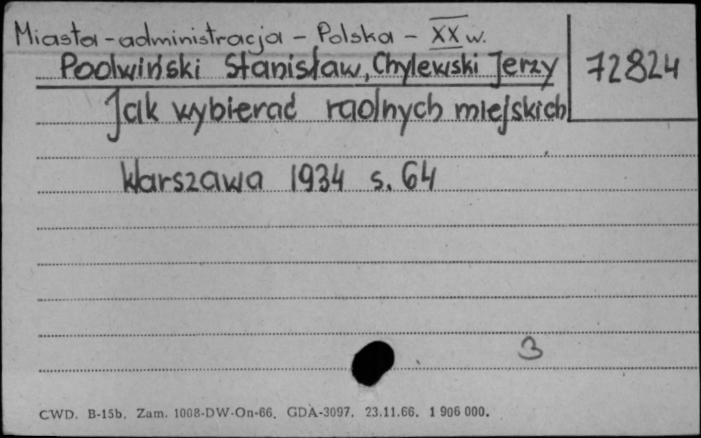 Miasta - administracja - Polska - XX w.
Podwiński Stanisław, Chylewski Jerzy
72824
Jak wybierać radnych miejskich
Warszawa 1934 s. 64
3
CWD. B-15b. Zam. 1008-DW-On-66. GDA-3097. 23.11.66. 1 906 000.